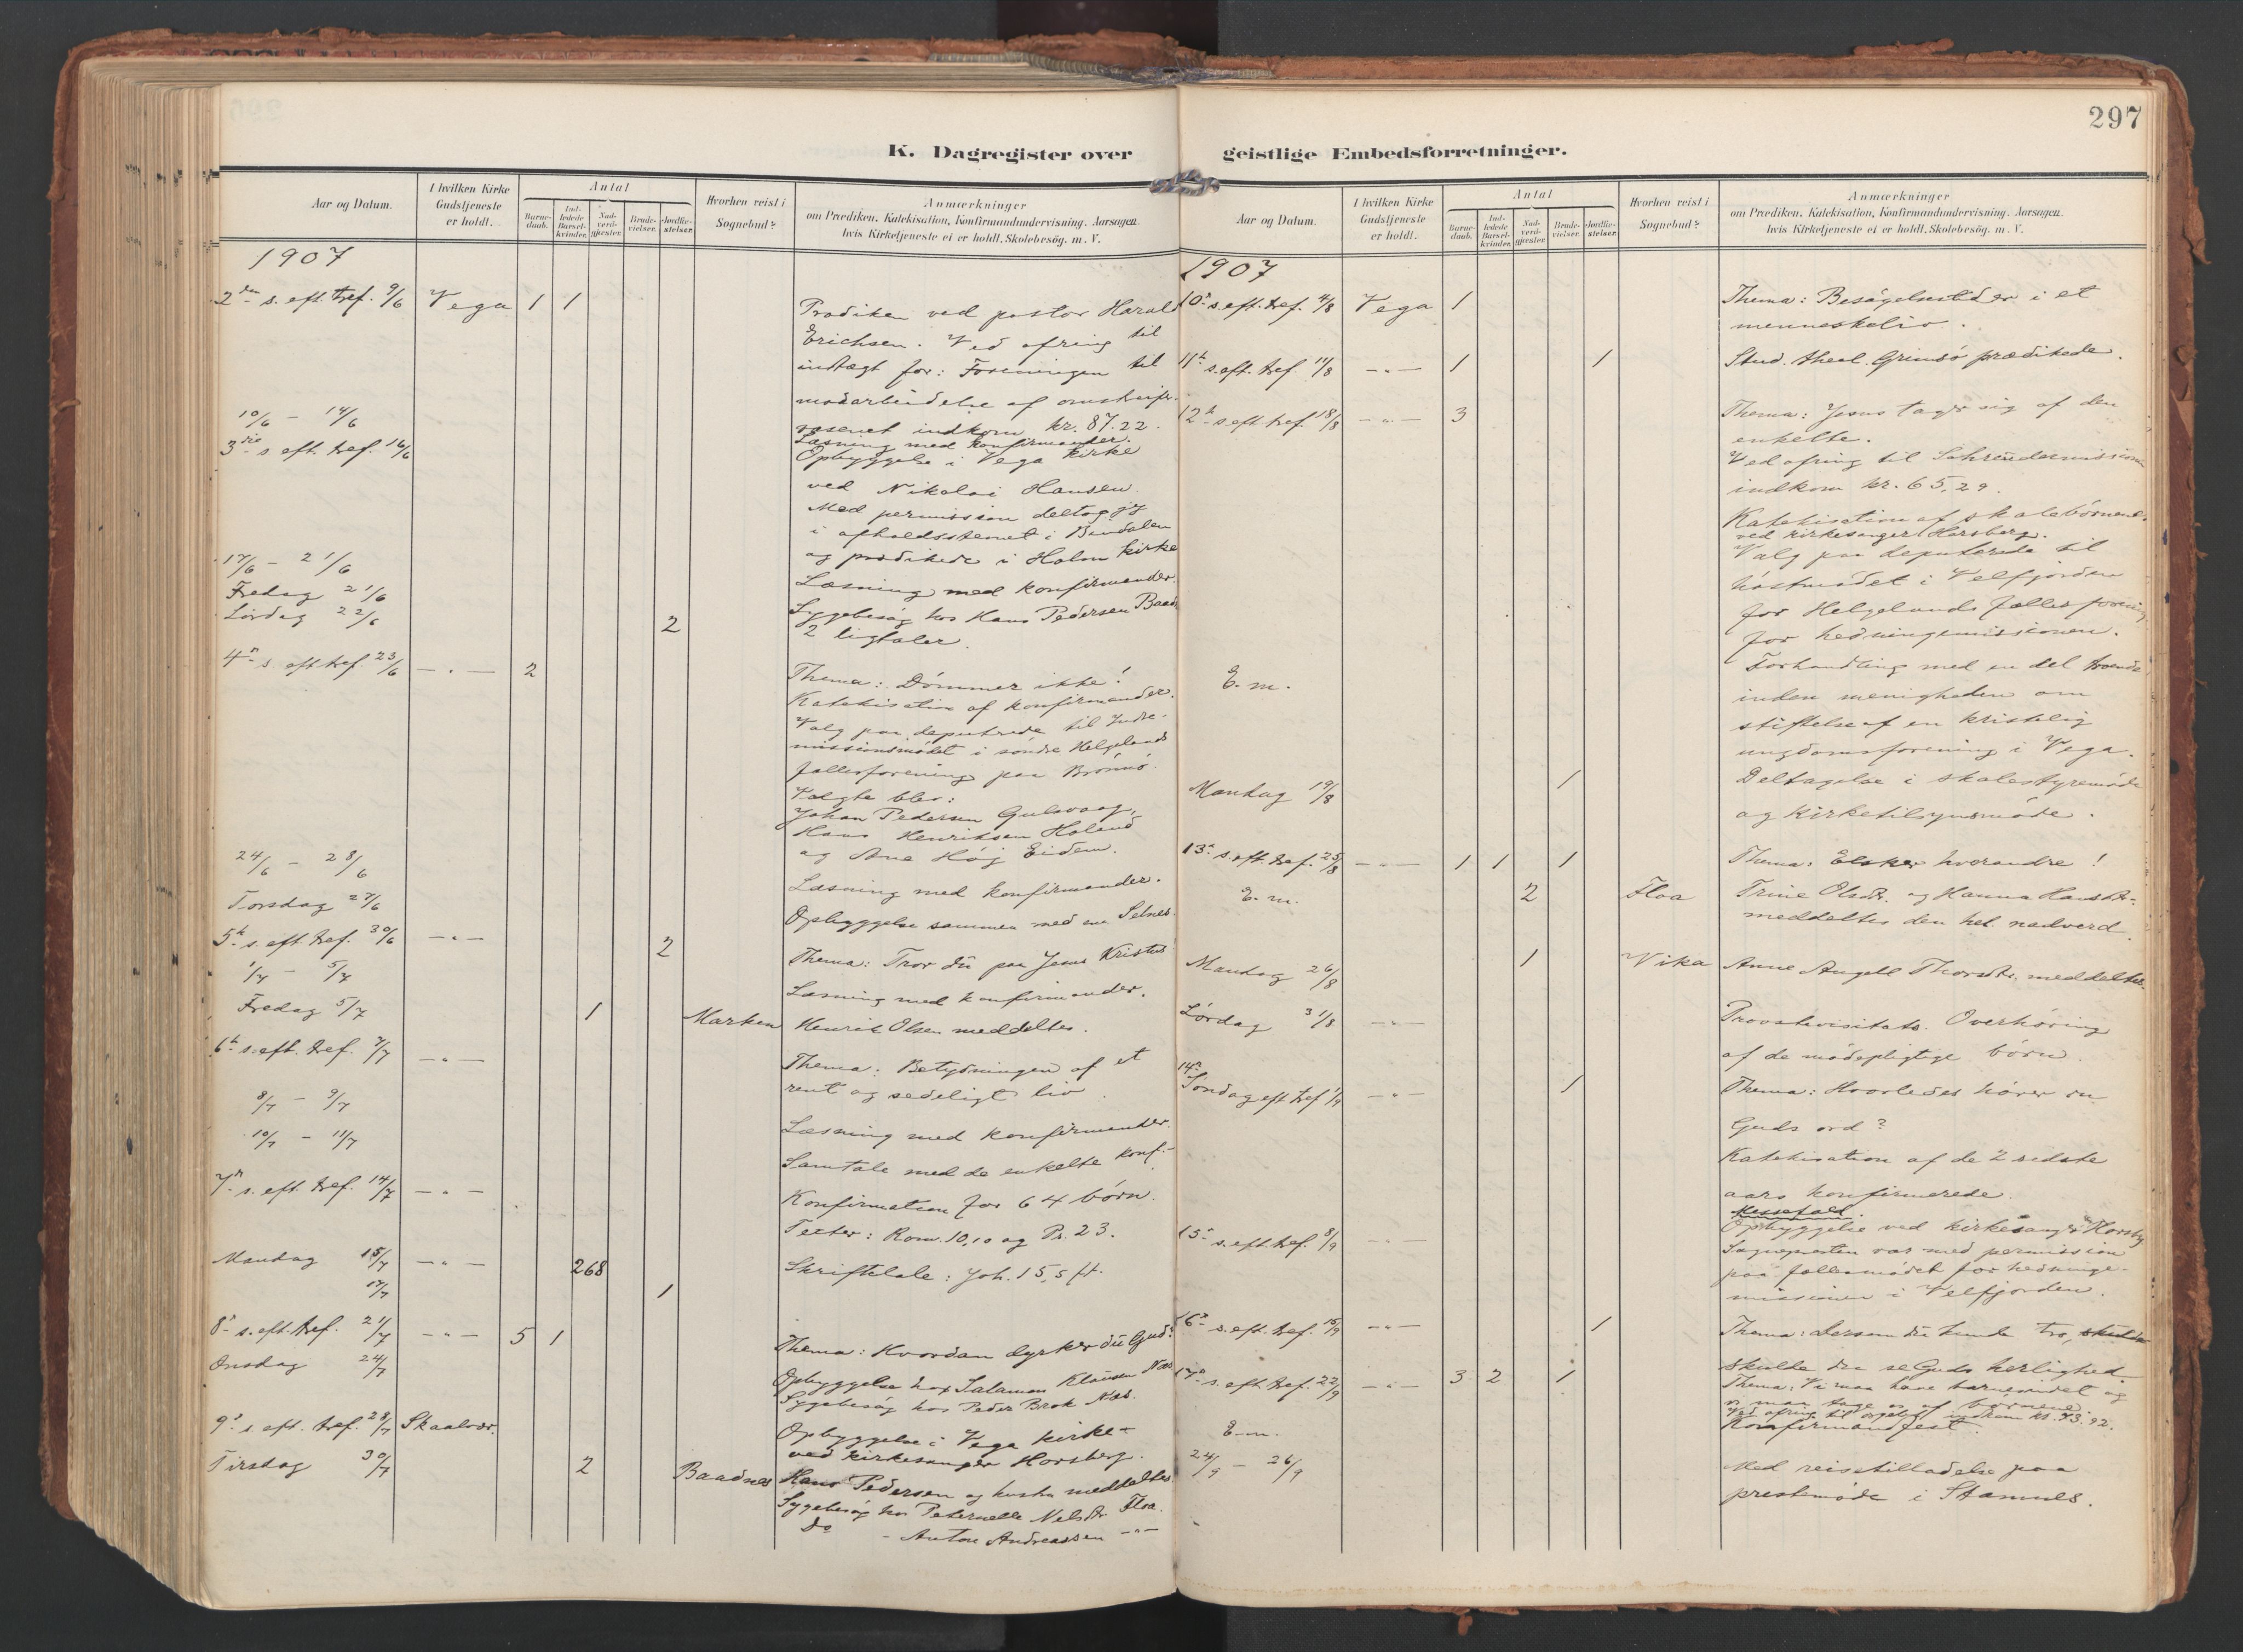 297
K. Dagregister over geistlige Embedsforretninger.
Aar og Datum.
I hvilken Kirke Gudstjeneste er holdt.
Antal
Barnedaab.
Indledede Barselkvinder.
Nadverdgjester.
Brudevielser.
Jordfæstelser.
Hvorhen reist i Sognebud?
Anmærkninger
om Prædiken, Katekisation, Konfirmandundervisning, Aarsagen
hvis Kirketjeneste ei er holdt, Skolebesög, m. V.
1907
2den s. eft. tref. 9/6 Vega 1 1
Prædiken ved pastor Harald
Erichsen. Ved ofring til
indtægt for: Foreningen til
modarbeidelse af omstreifer-
væsenet indkom kr. 87.22.
10/6 - 14/6 Læsning med konfirmander.
3die s eft. tref. 16/6 Opbyggelse i Vega kirke
ved Nikolai Hansen.
Med permission deltog jeg
i afholdsstevnet i Bindalen
og prædikede i Holm kirke
17/6 - 21/6 Læsning med konfirmander.
Fredag 21/6 Sygebesøg hos Hans Pedersen
Lørdag 22/6 2 2 ligtaler.
4de s. eft tref. 23/6 - " - 2 Thema: Dømmer ikke!
Katekisation af konfirmander.
Valg paa deputerede til Indre-
missionsmødet i søndre Helgelands
fællesforening paa Brønnø.
Valgte blev:
Johan Pedersen Gulsvaag,
Hans Henriksen Holand
og Ane Høj Eidem.
24/6 - 28/6 Læsning med konfirmander.
Torsdag 27/6 Opbyggelse sammen med Selnes
5te s. eft tref. 30/6 - " - 2 Thema: Tror du paa Jesus Kristus
1/7 - 5/7 Læsning med konfirmander.
Fredag 5/7 1 Marken Henrik Olsen meddeltes.
6te s. eft. tref. 7/7 - " - Thema: Betydningen af et
rent og sedeligt liv.
8/7 - 9/7 Læsning med konfirmander.
10/7 - 11/7 Samtale med de enkelte konf.
7de s. eft. tref. 14/7 - " - Konfirmation for 64 børn.
Texter: Rom. 10,10 og Ps. 23.
Mandag 15/7 - " - 268 Skriftetale: Joh. 15,5 ff.
17/7 1
8de s. eft. tref. 21/7 - " - 5 1 Thema: Hvordan dyrker du Gud?
Onsdag 24/7 Opbyggelse hos Salamon Klausen Næs
Sygebesøg hos Peder Brok Næs.
9de s eft. tref. 28/7 Skaalvær. Opbyggelse i Vega kirke
ved kirkesanger Horsberg.
Tirsdag 30/7 2 Baadnes Hans Pedersen og hustru meddeltes
Sygebesøg hos Peternelle Nelsdtr. Floa.
Do - Anton Andreassen - " -
Aar og Datum.
I hvilken Kirke Gudstjeneste er holdt.
Antal
Barnedaab.
Indledede Barselkvinder.
Nadverdgjester.
Brudevielser.
Jordfæstelser.
Hvorhen reist i Sognebud?
Anmærkninger
om Prædiken, Katekisation, Konfirmandundervisning, Aarsagen
hvis Kirketjeneste ei er holdt, Skolebesög, m. V.
1907
10de s. eft. tref. 4/8 Vega 1 Thema: Besøgelsestider i et
menneskeliv.
11te s. eft. tref. 11/8 - " - 1 1 Stud. theol. Grimsø prædikede.
12te s. eft. tref. 18/8 - " - 3 Thema: Jesus tager sig af den
enkelte.
Ved ofring til
indkom kr. 65,29.
Katekisation af skolebørnene
ved kirkesanger Horsberg.
Valg paa deputerede til
høstmødet i Velfjorden
for Helgelands fællesforening
for hedningemissionen.
E. m. Forhandling med en del troende
inden menigheden om
stiftelse af en kristelig
ungdomsforening i Vega.
Mandag 19/8 1 Deltagelse i skolestyremøde
og kirketilsynsmøde.
13de s. eft. tref. 25/8 - " - 1 1 1 Thema: Elsker hverandre!
E. m. 2 Floa Trine Olsdtr. og Hanna Hansdtr.
meddeltes den hel. nadverd.
Mandag 26/8 1 Vika Anne Angell Thorsdtr. meddeltes.
Lørdag 31/8 - " - Provstevisitats. Overhøring
af de mødepligtige børn.
14de
Søndag eft tref 1/9 - " - 1 Thema: Hvorledes hører du
Guds ord?
Katekisation af de 2 sidste
aars konfirmerede.
Messefald.
15de s. eft. tref. 8/9 - " - Opbyggelse ved kirkesanger Horsberg
Sognepresten var med permission
paa fællesmødet for hedninge-
missionen i Velfjorden.
16de s. eft. tref. 15/9 - " - 1 Thema: Dersom du kunde tro,
skulde du se Guds herlighed.
17de s. eft. tref. 22/9 - " - 3 2 1 Thema: Vi maa have barnesindet og
vi maa tage os af børnene.
Ved ofring til orgelet indkom kr. 43.92.
E. m. Konfirmandfest.
24/9 - 26/9 Med reisetilladelse paa
prestemøde i Stamnes.